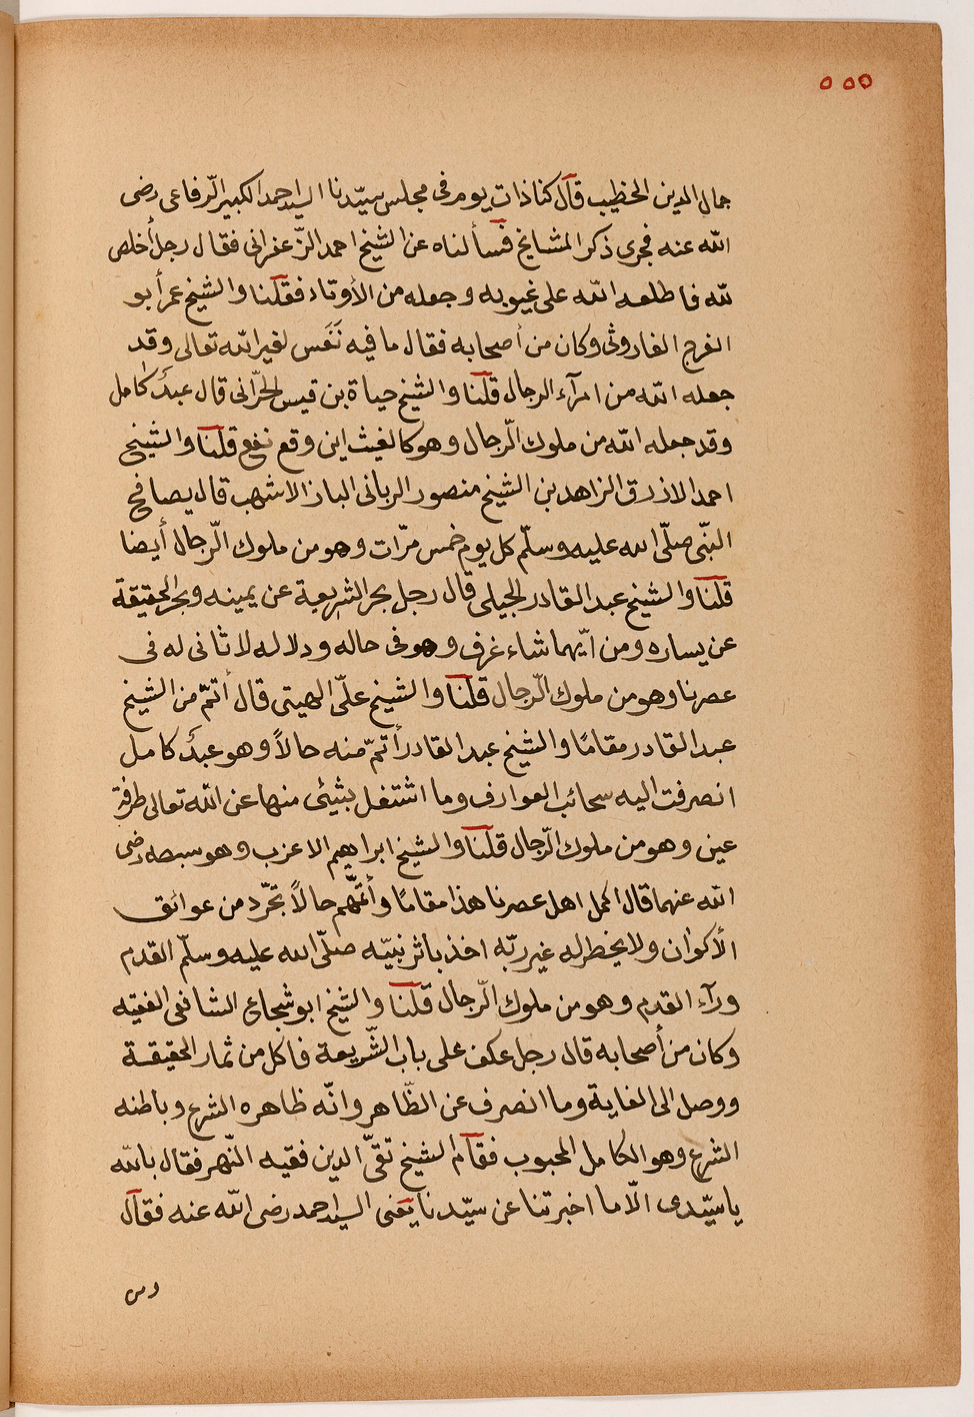 ٥٥٥
جمال الدين الخطيب قال كنا ذات يوم فى مجلس سيّدنا السيد احمد الكبير الرّفاعى رضى
الله عنه فجرى ذكر المشايخ فسألناه عن الشيخ احمد الزّعفرانى فقال رجل أخلص
لله فاطلعه الله على غيوبه وجعله من الأوتاد فقلنا والشيخ عمر أبو
الفرج الفاروثى وكان من أصحابه فقال ما فيه نَفَس لغير الله تعالى وقد
جعله الله من امرآء الرجال قلنا والشيخ حياة بن قيس الحرّانى قال عبدٌ كامل
وقد جعله الله من ملوك الرّجال وهو كالغيث اين وقع نفع قلنا والشيخ
احمد الازرق الزاهد بن الشيخ منصور الربانى الباز الاشهب قال يصافح
النبّى صلّى الله عليه وسلّم كل يوم خمس مرّات وهو من ملوك الرّجال أيضا
قلنا والشيخ عبد القادر الجيلى قال رجل بحر الشريعة عن يمينه وبحر الحقيقة
عن يساره ومن ايّهما شاء غرف وهو فى حاله ودلاله لا ثانى له فى
عصرنا وهو من ملوك الرّجال قلنا والشيخ علّى الهيتى قال أتمّ من الشيخ
عبد القادر مقامًا والشيخ عبد القادر أتمّ منه حالاً وهو عبدٌ كامل
انصرفت اليه سحائب العوارف وما اشتغل بشئى منها عن الله تعالى طرفة
عين وهو من ملوك الرّجال قلنا والشيخ ابراهيم الاعزب وهو سبطه رضى
الله عنهما قال اكمل اهل عصرنا هذا مقامًا وأتمّهم حالاً تجّرد من عوائق
الأكوان ولا يخطر له غير ربّه اخذ باثر نبيّه صلّى الله عليه وسلّم القدم
ورآء القدم وهو من ملوك الرّجال قلنا والشيخ ابو شجاع الشافعى الفقيه
وكان من أصحابه قال رجل عكف على باب الشّريعة فاكل من ثمار الحقيقة
ووصل الى الغاية وما انصرف عن الظّاهر وانّه ظاهره الشرع وباطنه
الشرع وهو الكامل المحبوب فقام الشيخ تقّى الدين فقيه النّهر فقال بالله
يا سيّدى الّا ما اخبرتنا عن سيّدنا يعنى السيد احمد رضى الله عنه فقال
ومن